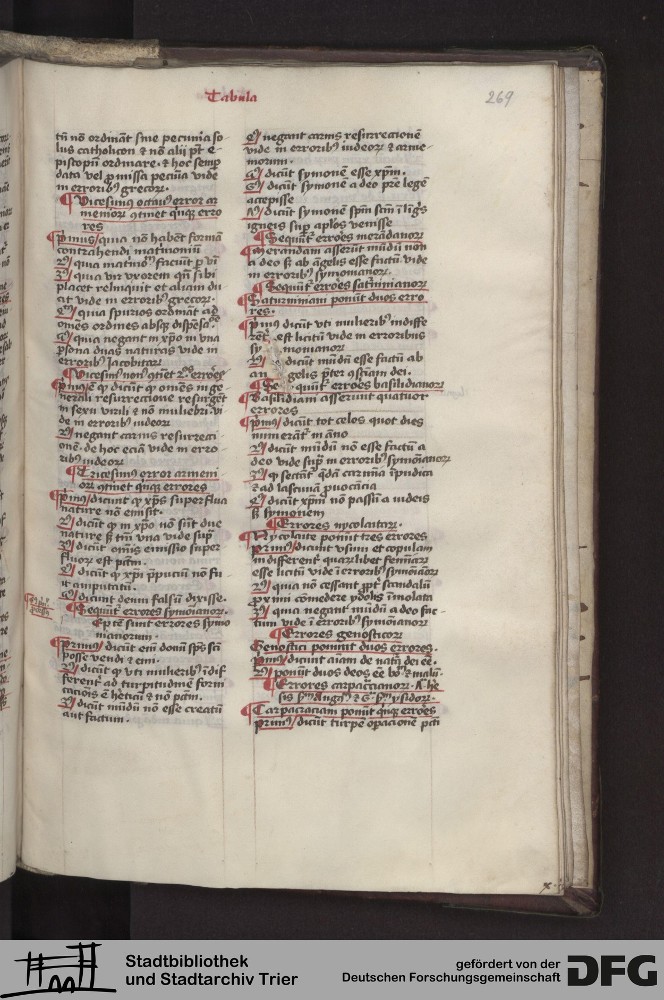 Tabula
269
tñ nō ordināt sine pecunia so
lus catholicon & nō alij pt e
piscopū ordinare · & hoc semp
data vel pmissa pecuia vide
in erroribꝰ grecoꝝ·
Vicesimꝰ octauꝰ error ar
menioꝝ ꝯtinet quīqꝫ erro
res
Primus/ quia nō habēt formā
contrahendi matrimoniū
quia matrioᷓ faciūt p vī
quia vir vxorem qn̄ sibi
placet relinquit et aliam du
cit vide in erroribꝰ grecoꝝ·
quia spurios ordināt ad
omēs ordines absqꝫ dispēsaᵒᵉ
quia negant in xp̄o in vna
psona duas naturas vide in
erroribꝰ Jacobitaꝝ
Vicesimꝰ nonꝰ ꝯtinet 2ˢ errores
Primꝰ ē ꝙ dicūt ꝙ omēs in ge
nerali resurrectione resurgēt
in sexu virili & nō muliebri· vi
de in erroribꝰ iudeoꝝ
negant carnis resurrecti
onē· de hoc eciā vide in erro
ribꝰ iudeoꝝ
Tricesimꝰ error armeni
oꝝ ꝯtinet quīqꝫ errores
Primꝰ/ dicunt ꝙ xp̄s superflua
nature nō emisit·
dicūt ꝙ in xp̄o nō sūt due
nature sꝫ tm̄ vna vide sup
dicūt omīs emissio super
fluoꝝ est pctm̄·
dicūt ꝙ xp̄i pꝑuciū nō fu
it amputatū·
dicunt deum falsū dixisse·
Sequunt̄ errores symōianoꝝ·
Ep tē sunt errores symo
nianorum·
Primꝰ/ dicūt em̄ donū sp̄s sc̄i
posse vendi & emi·
dicūt ꝙ vti mulieribꝰ īdif
ferent̄ ad turpitudinē forni
cacōis ē licitū & nō pctm̄·
dicūt mūdū nō esse creatū
aut factum·
negant carnis resurrectionē
vide in erroribꝰ iudeoꝝ & arme
niorum·
dicūt symonē esse xp̄m·
dicūt symonē a deo p̄re legē
accepisse
dicūt symonē sp̄m sc̄m ī līgīs
igneis sup ap̄los venisse
Sequūt̄ errōes menādianoꝝ
Menandiani asserūt mūdū non
a deo sꝫ ab āgelis esse factū vide
in erroribꝰ symonianoꝝ·
Sequūt̄ errōes sat̄nimanoꝝ
Saturniniani ponūt duos erro
res·
Primꝰ dicūt vti mulieribꝰ indiffe
rēt̄ est licitū vide in erroribus
sy monianoꝝ
dicūt mūdū esse factū ab
an gelis pter ꝯsciam dei·
Se quūt̄ errōes basilidianoꝝ
Basilidiani asserunt quatuor
errores
Primꝰ/ dicūt tot celos quot dies
numerāt̄ in āno
dicūt mūdū nō esse factū a
deo vide sup in erroribꝰ symoianoꝝ
ꝙ sectāt̄ qdā carmīa īpudica
& ad lasciuiā puocācia
dicūt xp̄m nō passū a iudeis
sꝫ symonem
Errores nycolaitaꝝ·
Nycolaite ponūt tres errores
Primꝰ/ dicunt vsum et copulam
indifferent̄ quaꝝlibet feminaꝝ
esse licitū vide ī erroribꝰ symōianoꝝ
quia nō cessant ppt̄ scandalū
pximi comedere ydolis īmolata
quia negant mūdū a deo fac
tum vide ī erroribꝰ symōianoꝝ
Errores genosticoꝝ
Genostici ponunt duos errores·
Primꝰ/ dicunt aīam de natā dei eē·
ponūt duos deos eē boᷓ & malū·
Errores carpaciānoꝝ·
Carpaciaciani ponūt quīqꝫ errōes
Primꝰ/ dicūt turpē opacionē pcti
Stadtbibliothek
und Stadtarchiv Trier
gefördert von der
Deutschen Forschungsgemeinschaft
DFG